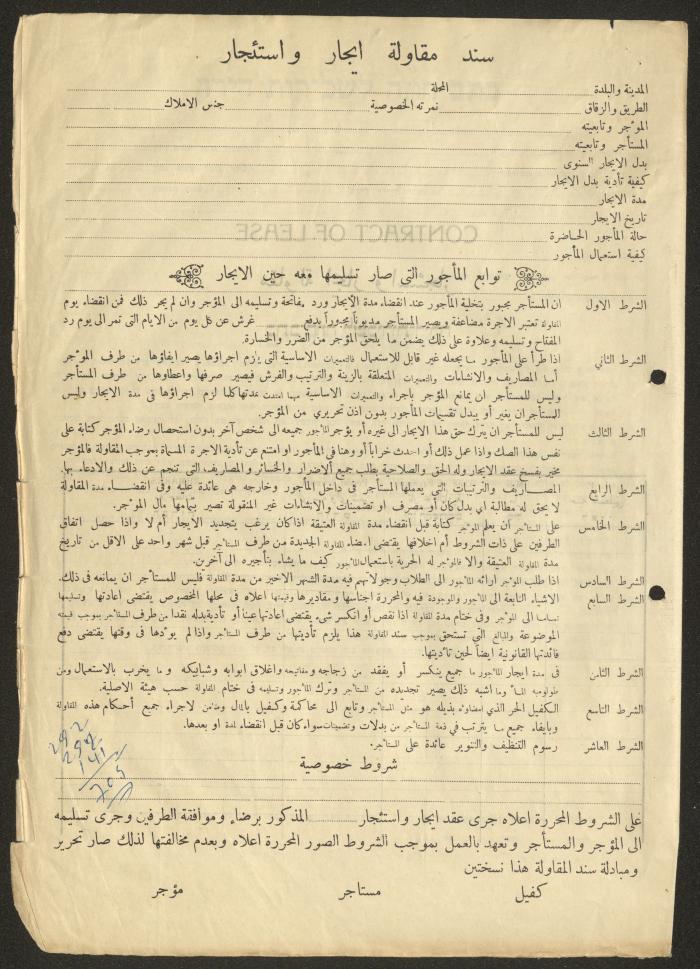 سند مقاولة ايجار واستئجار
المدينة والبلدة المحلة
الطريق والزقاق نمرته الخصوصية جنس الاملاك
المؤجر وتابعيته
المستأجر وتابعيته
بدل الايجار السنوى
كيفية تأدية بدل الايجار
مدة الايجار
تاريخ الايجار
حالة المأجور الحاضرة
CONTRACT OF LEASE
كيفية استعمال المأجور
توابع المأجور التى صار تسليمها معه حين الايجار
الشرط الاول ان المستأجر مجبور بتخلية المأجور عند انقضاء مدة الايجار ورد مفاتحة وتسليمه الى المؤجر وان لم يحر ذلك فمن انقضاء يوم
المقاولة تعتبر الاجرة مضاعفة ويصير المستأجر مديوناً مجبوراً بدفع غرش عن كل يوم من الايام التى تمر الى يوم رد
المفتاح وتسليمه وعلاوة على ذلك يضمن ما يلحق المؤجر من الضرر والخسارة.
الشرط الثاني اذا طرأ على المأجور ما يجعله غير قابل للاستعمال فالتعميرات الاساسية التى يلزم اجراؤها يصير ايفاؤها من طرف المؤجر
أما المصاريف والانشاءات والتعميرات المتعلقة بالزينة والترتيب والفرش فيصير صرفها واعطاوها من طرف المستأجر
وليس للمستأجر ان يمانع المؤجر باجراء والتعميرات الاساسية مهما امتدت مدتها كلما لزم اجراؤها فى مدة الايجار وليس
للمستأجر ان يغير أو يبدل تقسيمات المأجور بدون اذن تحريري من المؤجر.
الشرط الثالث ليس للمستأجر ان يترك حق هذا الايجار الى غيره أو يؤجر المأجور جميعه الى شخص آخر بدون استحصال رضاء المؤجر كتابة على
نفس هذا الصك واذا عمل ذلك أو احدث خراباً أو وهنا فى المأجور او امتنع عن تأدية الاجرة المسماة بموجب المقاولة فالمؤجر
مخير بفسخ عقد الايجار وله الحق والصلاحية بطلب جميع الاضرار والخسائر والمصاريف التى تنجم عن ذلك والادعاء بها.
الشرط الرابع المصاريف والترتيبات التى يعملها المستأجر فى داخل المأجور وخارجه هى عائدة عليه وفى انقضاء مدة المقاولة
لا يحق له مطالبة اي بدل كان أو مصرف او تضمينات والانشاءات غير المنقولة تصير بتمامها مال المؤجر.
الشرط الخامس على المستأجر أن يعلم المؤجر كتابة قبل انقضاء مدة المقاولة العتيقة اذا كان يرغب بتجديد الايجار أم لا واذا حصل اتفاق
الطرفين على ذات الشروط أم اخلافها يقتضى امضاء المقاولة الجديدة من طرف المستأجر قبل شهر واحد على الاقل من تاريخ
مدة المقاولة العتيقة والا فالمؤجر له الحرية باستعمال المأجور كيف ما يشاء بتأجيره الى آخرين.
الشرط السادس اذا طلب المؤجر ارائه المأجور الى الطلاب وجولانهم فيه مدة الشهر الاخير من مدة المقاولة فليس للمستأجر ان يمانعه فى ذلك.
الشرط السابع الاشياء التابعة الى المأجور والموجودة فيه والمحررة اجناسها ومقاديرها وقيمتها اعلاه فى محلها المخصوص يقتضى اعادتها وتسليمها
تماما الى المؤجر وفى ختام مدة المقاولة اذا نقص أو انكسر شىء يقتضى اعادتها عينا أو تأدية بدله نقدا من طرف المستأجر بموجب قيمته
الموضوعة والمبالغ التي تستحق بموجب سند المقاولة هذا يلزم تأديتها من طرف المستأجر واذا لم يودها فى وقتها يقتضى دفع
فائدتها القانونية ايضاً لحين تأديتها.
الشرط الثامن فى مدة ايجار المأجور ما جميع ينكسر أو يفقد من زجاجه ومفاتيحه واغلاق ابوابه وشبابيكه وما يخرب بالاستعمال ومن
طولومبه الماء وما اشبه ذلك يصير تجديده من المستأجر وترك المأجور وتسليمه فى ختام المقاولة حسب هيئة الاصلية.
الشرط التاسع الكفيل الحر الذي امضاؤه بذيله هو مثل المستأجر وتابع الى محاكمة وكفيل بالمال وضامن لاجراء جميع أحكام هذه المقاولة
وبايفاء جميع ما يترتب فى ذمة المستأجر من بدلات وتضمينات سواء كان قبل انقضاء المدة او بعدها.
الشرط العاشر رسوم التنظيف والتنوير عائدة على المستأجر.
شروط خصوصية
292
292
141
705
على الشروط المحررة اعلاه جرى عقد ايجار واستئجار المذكور برضاء وموافقة الطرفين وجرى تسليمه
الى المؤجر والمستأجر وتعهد بالعمل بموجب الشروط الصور المحررة اعلاه وبعدم مخالفتها لذلك صار تحرير
ومبادلة سند المقاولة هذا نسختين
كفيل مستاجر مؤجر